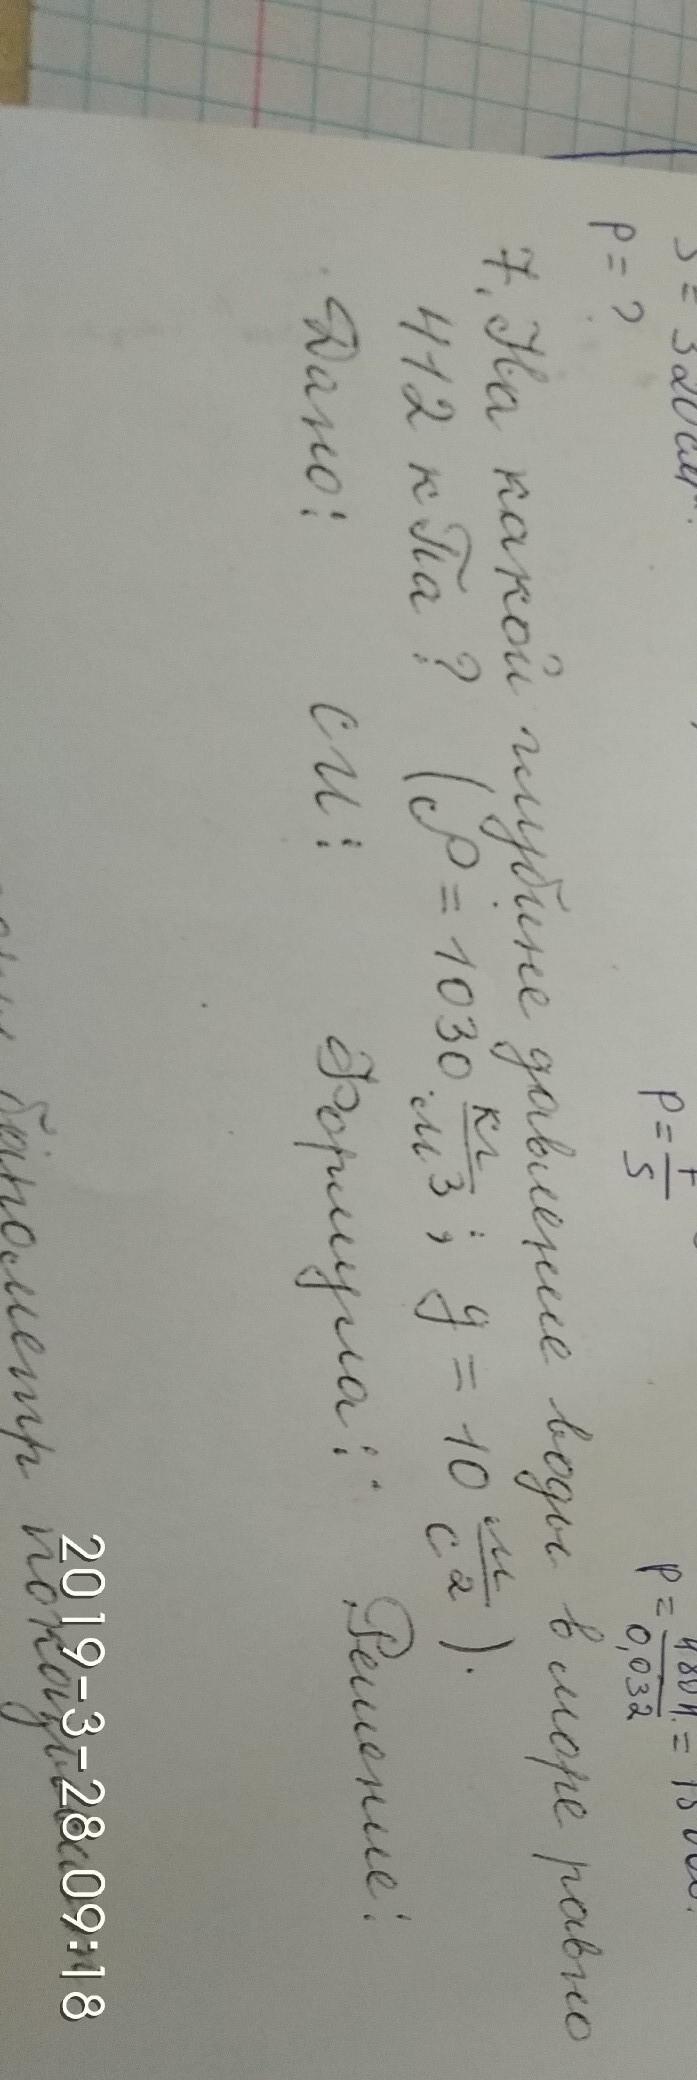 S = 320 см².
p = ?
p = F/S
p = 480 Н/0,032 =
7. На какой глубине давление воды в море равно
412 кПа? (ρ = 1030 кг/м3; g = 10 м/с2).
Дано: СИ: Формула: Решение:
барометр
2019-3-28 09:18